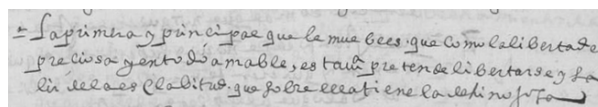 La primera y principal que le mueve es. que como la libertad es
preciosa y en todo amable, es tambn pretende libertarse y sa
lir de la esclabitud. que sobre ella tiene la